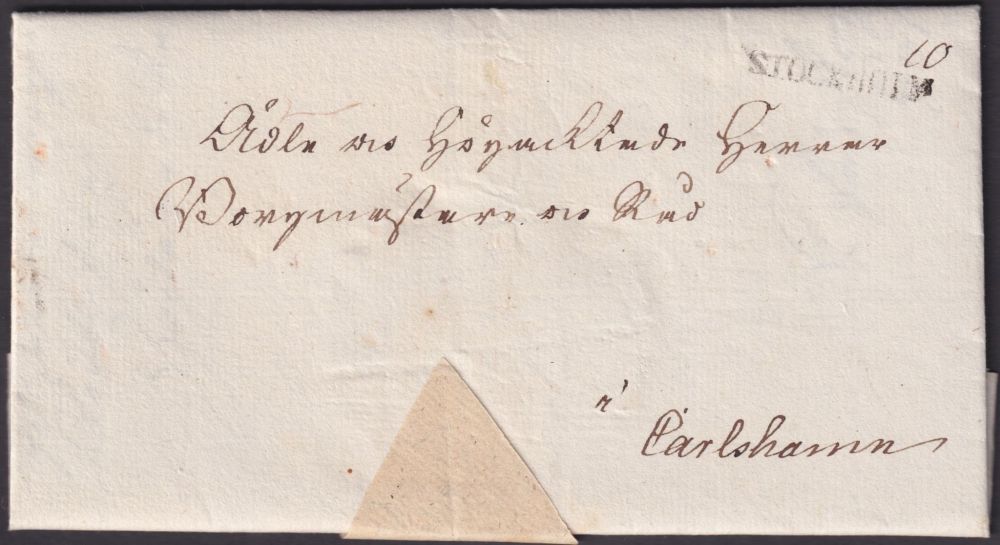 10
STOCKHOLM
Ädle och Högacktade Herrar
Borgmästare och Råd
i
Carlshamn